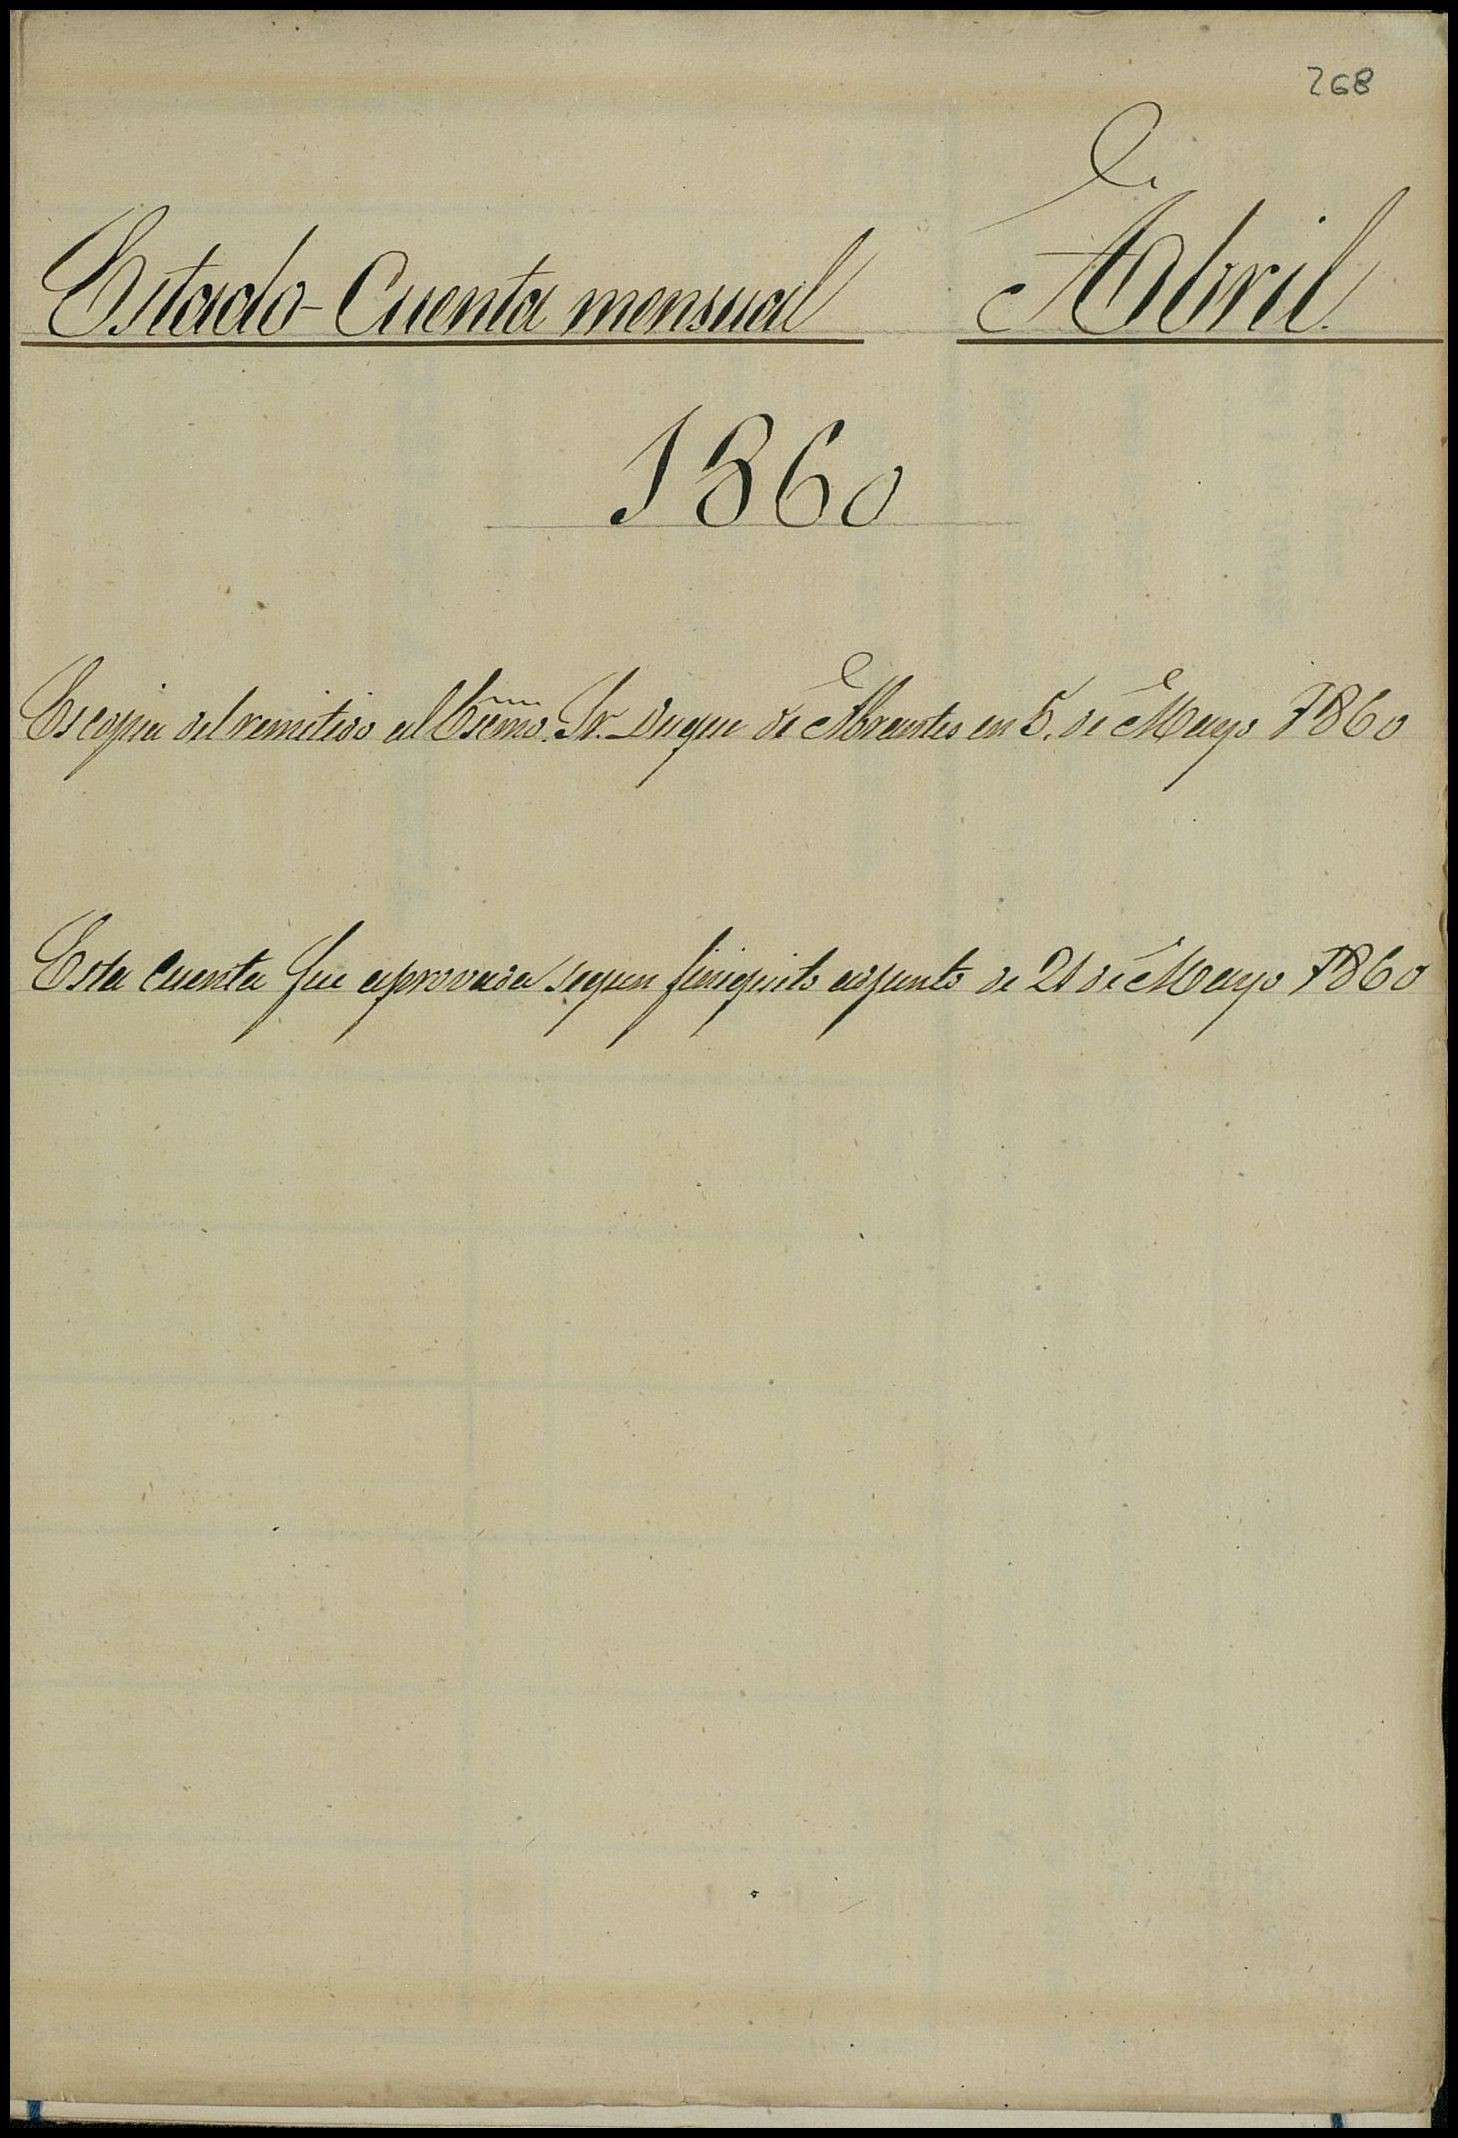 268
Estado-Cuenta mensual Abril.
1860
Es copia del remitido al Excmo. Sr. Duque de Abrantes en 5. de Mayo 1860
Esta Cuenta fue aprovada segun finiquito adjunto de 21 de Mayo 1860